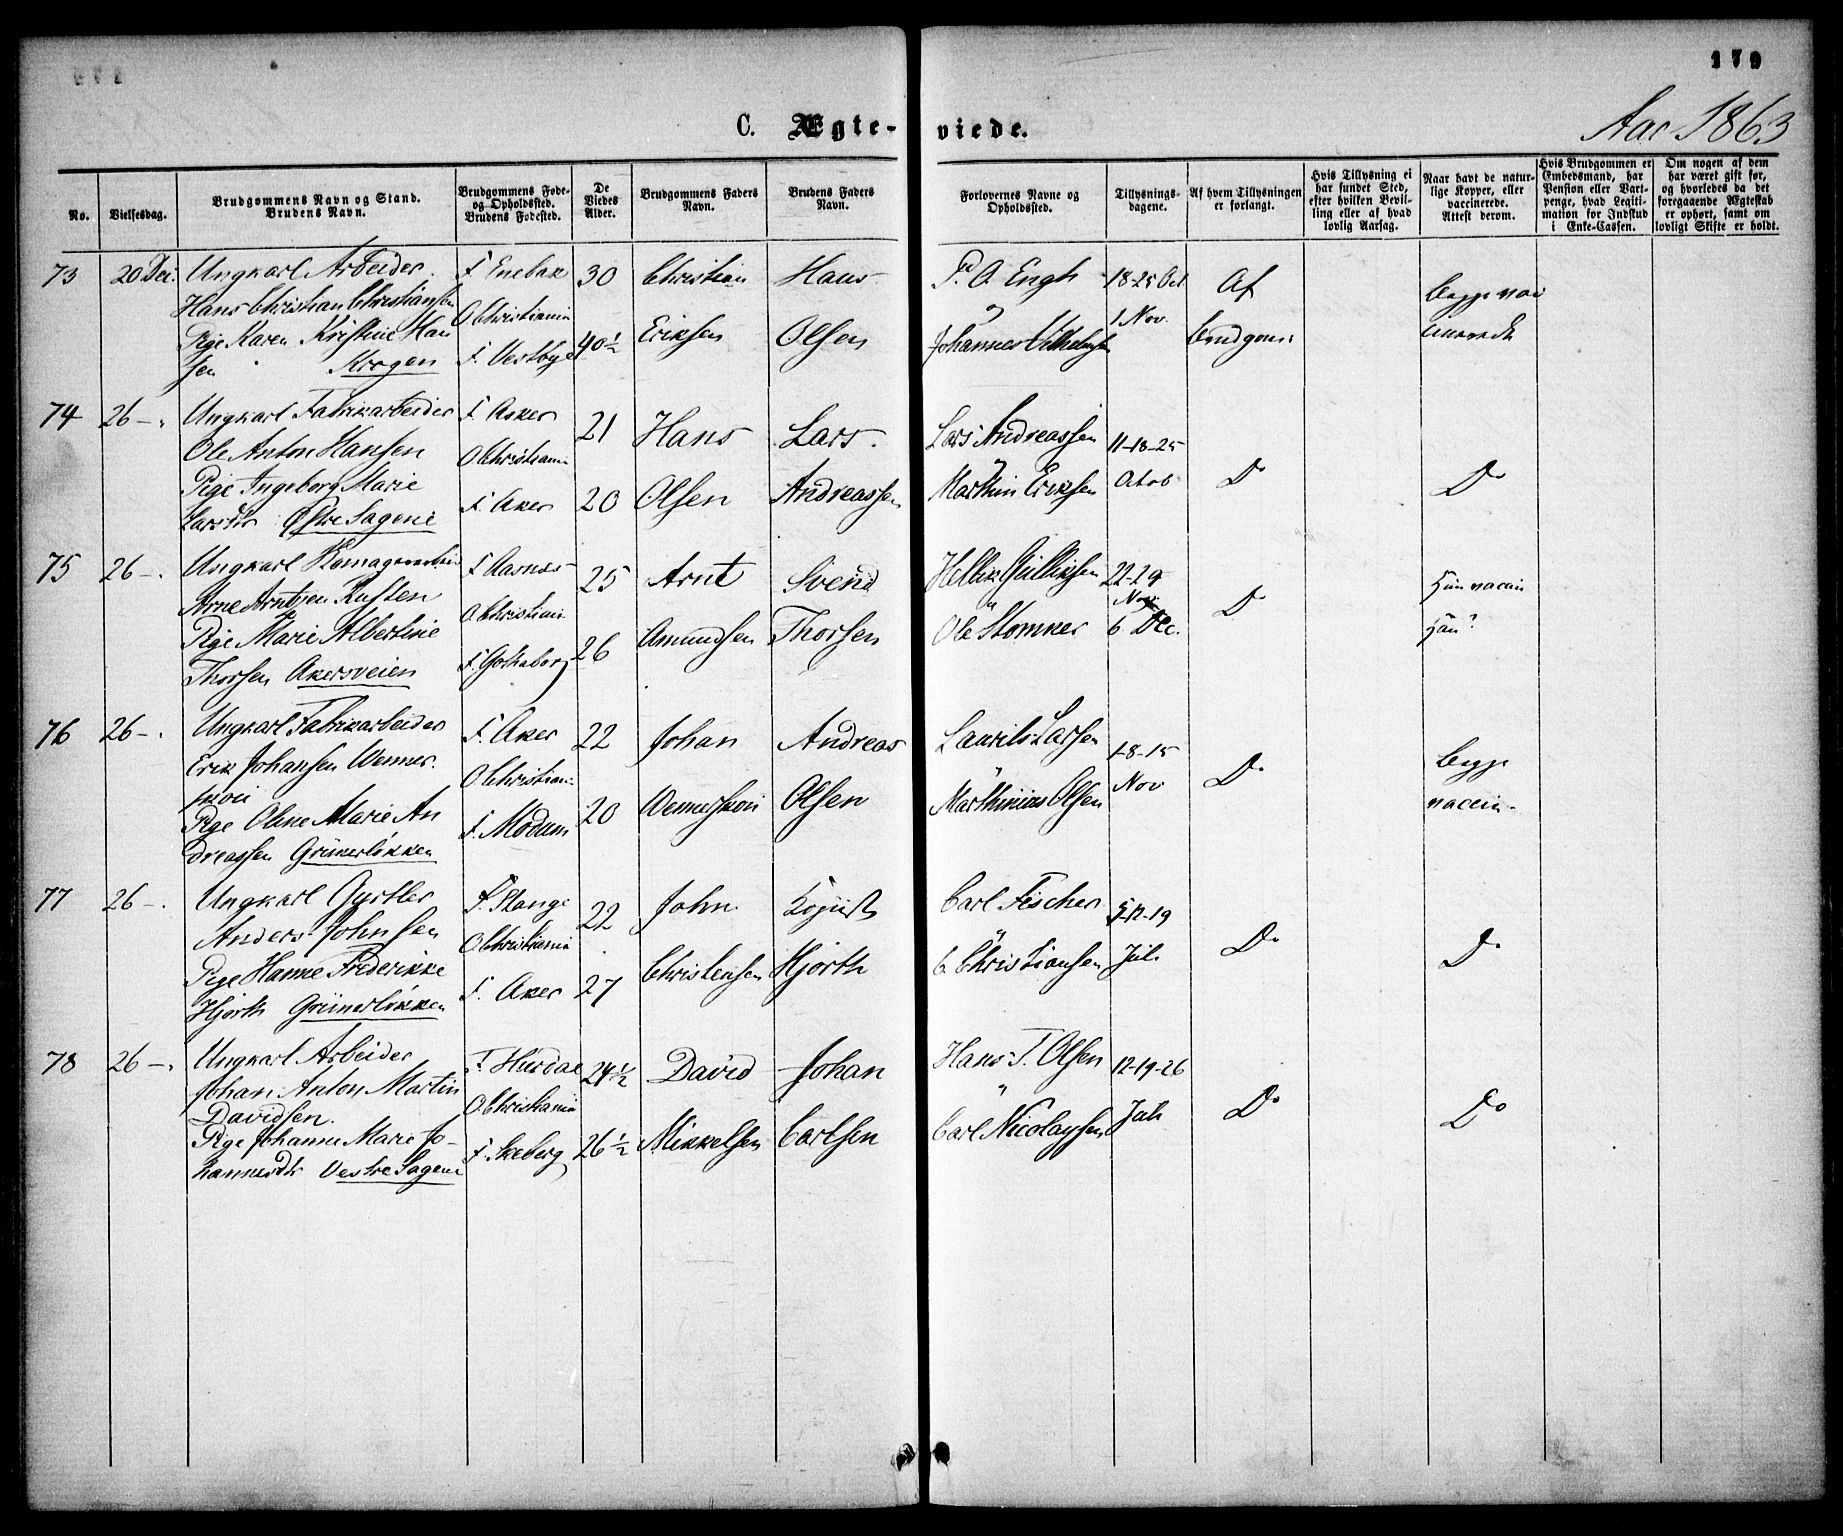 179
C. Ægte-viede.
Aar 1863
No.
Vielsesdag.
Brudgommens Navn og Stand.
Brudens Navn.
Brudgommens Føde- og Opholdssted.
Brudens Fødested.
De Viedes Alder.
Brudgommens Faders Navn.
Brudens Faders Navn.
Forlovernes Navne og Opholdssted.
Tillysnings-dagene.
Af hvem Tillysningen er forlangt.
Hvis Tillysning ei har fundet Sted, efter hvilken Bevilling eller af hvad lovlig Aarsag.
Naar havt de naturlige Kopper, eller vaccinerede. Attest derom.
Hvis Brudgommen er Embedsmand, har Pension eller Vartpenge, hvad Legitimation for Indskud i Enke-Cassen.
Om nogen af dem har været gift før, og hvorledes da det foregaaende Ægteskab er ophørt, samt om lovligt Skifte er holdt.
73 20 Dec. Ungkarl Arbeider F Enebak 30 Christian Hans P. O. Engh 18-25 Oct Af Begge vac
Hans Christian Christiansen O Christiania 1 Nov.
Pige Karen Kristine Han F. Vestbye 40½ Eriksen Olsen Johannes Vilhelmsen Brudgom:
sen Krogen
74 26 -. Ungkarl Fabrikarbeider F. Asker 21 Hans Lars Lars Andreassen 11-18-25
Ole Anton Hansen O Christiania
Pige Ingeborg Marie F. Aker 20 Olsen Andreassen Marthin Eriksen Octob Do Do
Larsdtr Østre Sagene
75 26 -. Ungkarl F. Aasnes 25 Arnt Svend Hellik Gulliksen 22-29 Hun vaccin
Arne Arntsen Kusten O Christian Nov. Do
Pige Marie Albertine 26 Amundsen Thorsen Ole Stomner 6 Dec. Han?
Thorsen Akersveien F. Gothaborg
76 26 -. Ungkarl Fabrikarbeider F. Aker 22 Johan Andreas Laurits Larsen 1-8-15 Begge
Erik Johansen Wenner O Christian: Nov Do
skou 20 Wennerskou Olsen Marthinius Olsen vaccin-
Pige Oline Marie An F. Modum
dreassen Grünerløkken
77 26 -. Ungkarl Gyrtler F. Stange 22 John Carl Fischer 5-12-19
Anders Johnsen O Christiania
Pige Hanne Frederikke F. Aker 27 Christensen Hjorth C. Christiansen Juli Do Do
Hjorth Grünerløkken
78 26 -. Ungkarl Arbeider F Hurdal 24½ David Johan Hans T. Olsen 12-19-26
Johan Anton Martin O Christiania
Davidsen.
Pige Johanne Marie Jo- F Skeberg 26½ Mikkelsen Carlsen Carl Nicolaysen Juli Do Do
hannesdtr Vestre Sagene